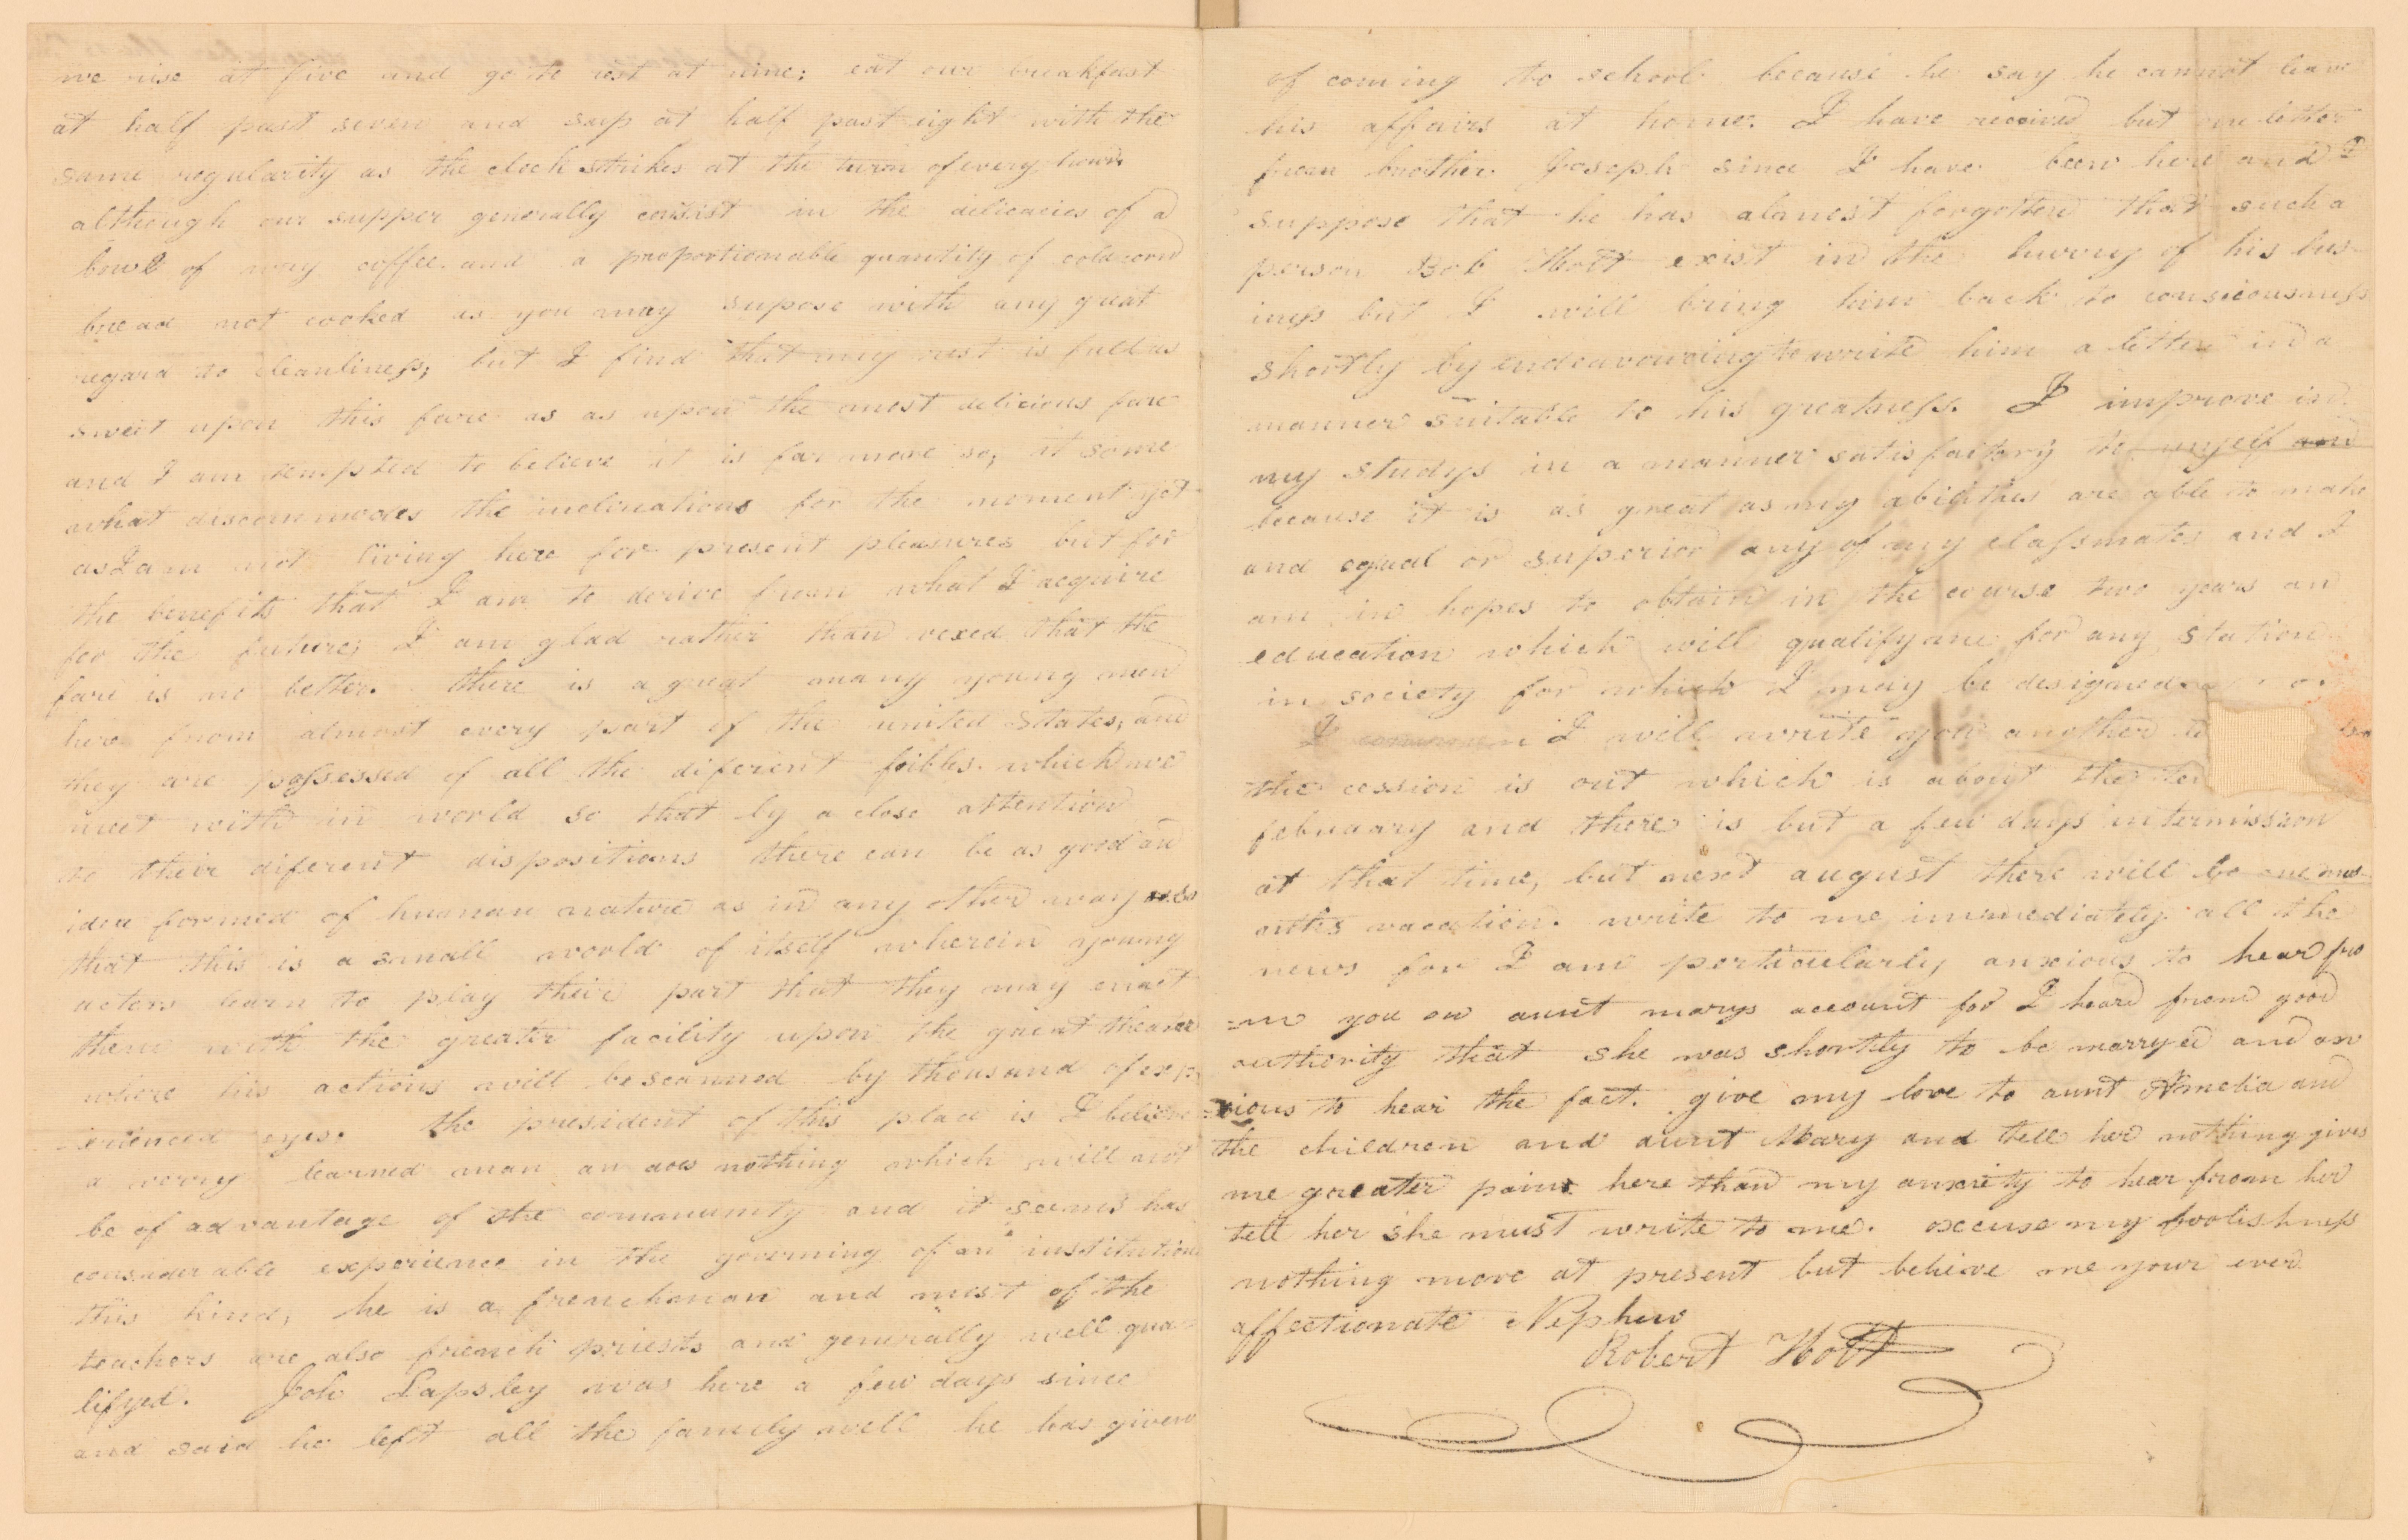 we rise at five and go to rest at nine; eat our breakfast
at half past seven and sup at half past eight with the
same regularity as the clock strikes at the turn of every hour.
although our supper generally consist in the delicacies of a
bowl of coffee and a proportionable quantity of cold corn
bread not cooked as you may supose with any great
regard to cleanliness; but I find that my rest is full as
sweet upon this fare as as upon the most delicious fare
and I am tempted to believe it is far more so, it some
what discommodes the inclinations for the moment yet
as I am not living here for present pleasures but for
the benefits that I am to derive from what I acquire
for the future; I am glad rather than vexed that the
fare is no better. there is a great many young men
here from almost every part of the united States, and
they are possessed of all the diferent foibles which we
meet with in world so that by a close attention
to their diferent dispositions there can be as good an
idea formed of human nature as in any other way
that this is a small world of itself wherein young
actors learn to play their part that they may enact
them with the greater facility upon the great theater
where his actions will be scanned by thousand of exp
erienced eyes. the president of this place is I believe
a verry learned man an does nothing which will not
be of advantage of the community and it seems has
considerable experience in the governing of an institution
this kind, he is a frenchman and most of the
teachers are also french priests and generally well qua
lifyed. Joh Lapsley was here a few days since
and said he left all the family well he has given
of coming to school because he say he cannot leave
his affairs at home. I have received but one letter
from brother Joseph since I have been here and I
suppose that he has almost forgotten that such a
person Bob Hott exist in the hurry of his bus
iness but I will bring him back to consciousness
shortly by endeavouring to write him a letter in a
manner suitable to his greatness. I improve in
my studys in a manner satisfactory to myself and
because it is as great as my abilities are able to make
and equal or superior any of my classmates and I
am in hopes to obtain in the course two years an
education which will qualify me for any station
in society for which I may be designed
I I will write you another
the cession is out which is about the
february and there is but a few days intermission
at that time, but next august there will be one mo
onths vacation. write to me immediately all the
news for I am perticularly anxious to hear fro
=m you on aunt marys account for I heard from good
authority that she was shortly to be marryed and anx
=xious to hear the fact. give my love to aunt Amelia and
the children and aunt Mary and tell her nothing gives
me greater pain here than my anxiety to hear from her
tell her she must write to me. excuse my foolishness
nothing more at present but believe me your ever
affectionate Nephew
Robert Hott